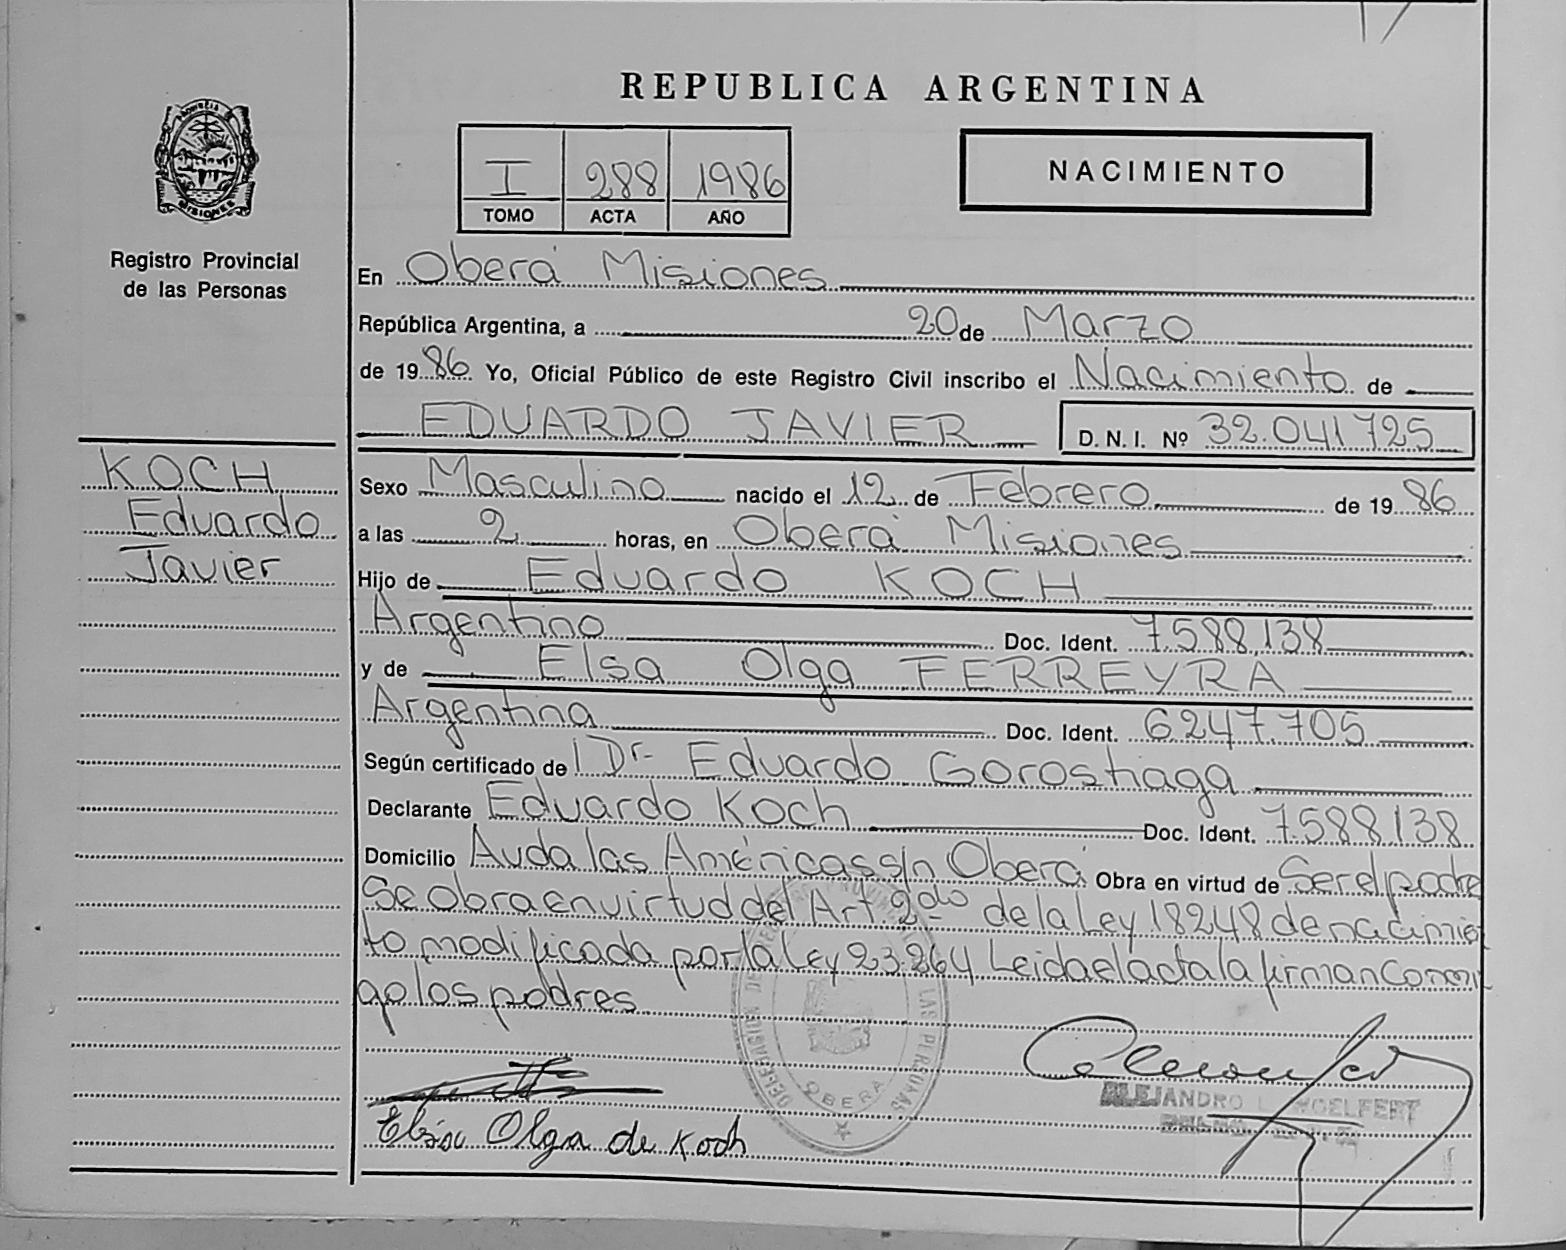 REPUBLICA ARGENTINA
I 288 1986
TOMO ACTA AÑO
NACIMIENTO
MISIONES
Registro Provincial
de las Personas
KOCH
Eduardo
Javier
En Oberá Misiones
República Argentina, a 20 de Marzo
de 1986 Yo, Oficial Público de este Registro Civil inscribo el Nacimiento de
EDUARDO JAVIER D. N. I. Nº 32.041725
Sexo Masculino nacido el 12 de Febrero de 1986
a las 2 horas, en Oberá Misiones
Hijo de Eduardo KOCH
Argentino Doc. Ident. 7.588.138
y de Elsa Olga FERREYRA
Argentina Doc. Ident. 6.247.705
Según certificado de Dr. Eduardo Gorostiaga
Declarante Eduardo Koch Doc. Ident. 7.588.138
Domicilio Avda las Américas s/n Oberá Obra en virtud de Ser el padre
Se Obra en virtud del Art. 2do de la Ley 18248 de nacimien
to modificada por la Ley 23.264 Leida el acta la firman Conmi
go los padres
LAS PERSONAS
OBERA
ALEJANDRO L. WOELFERT
Elsa Olga de Koch